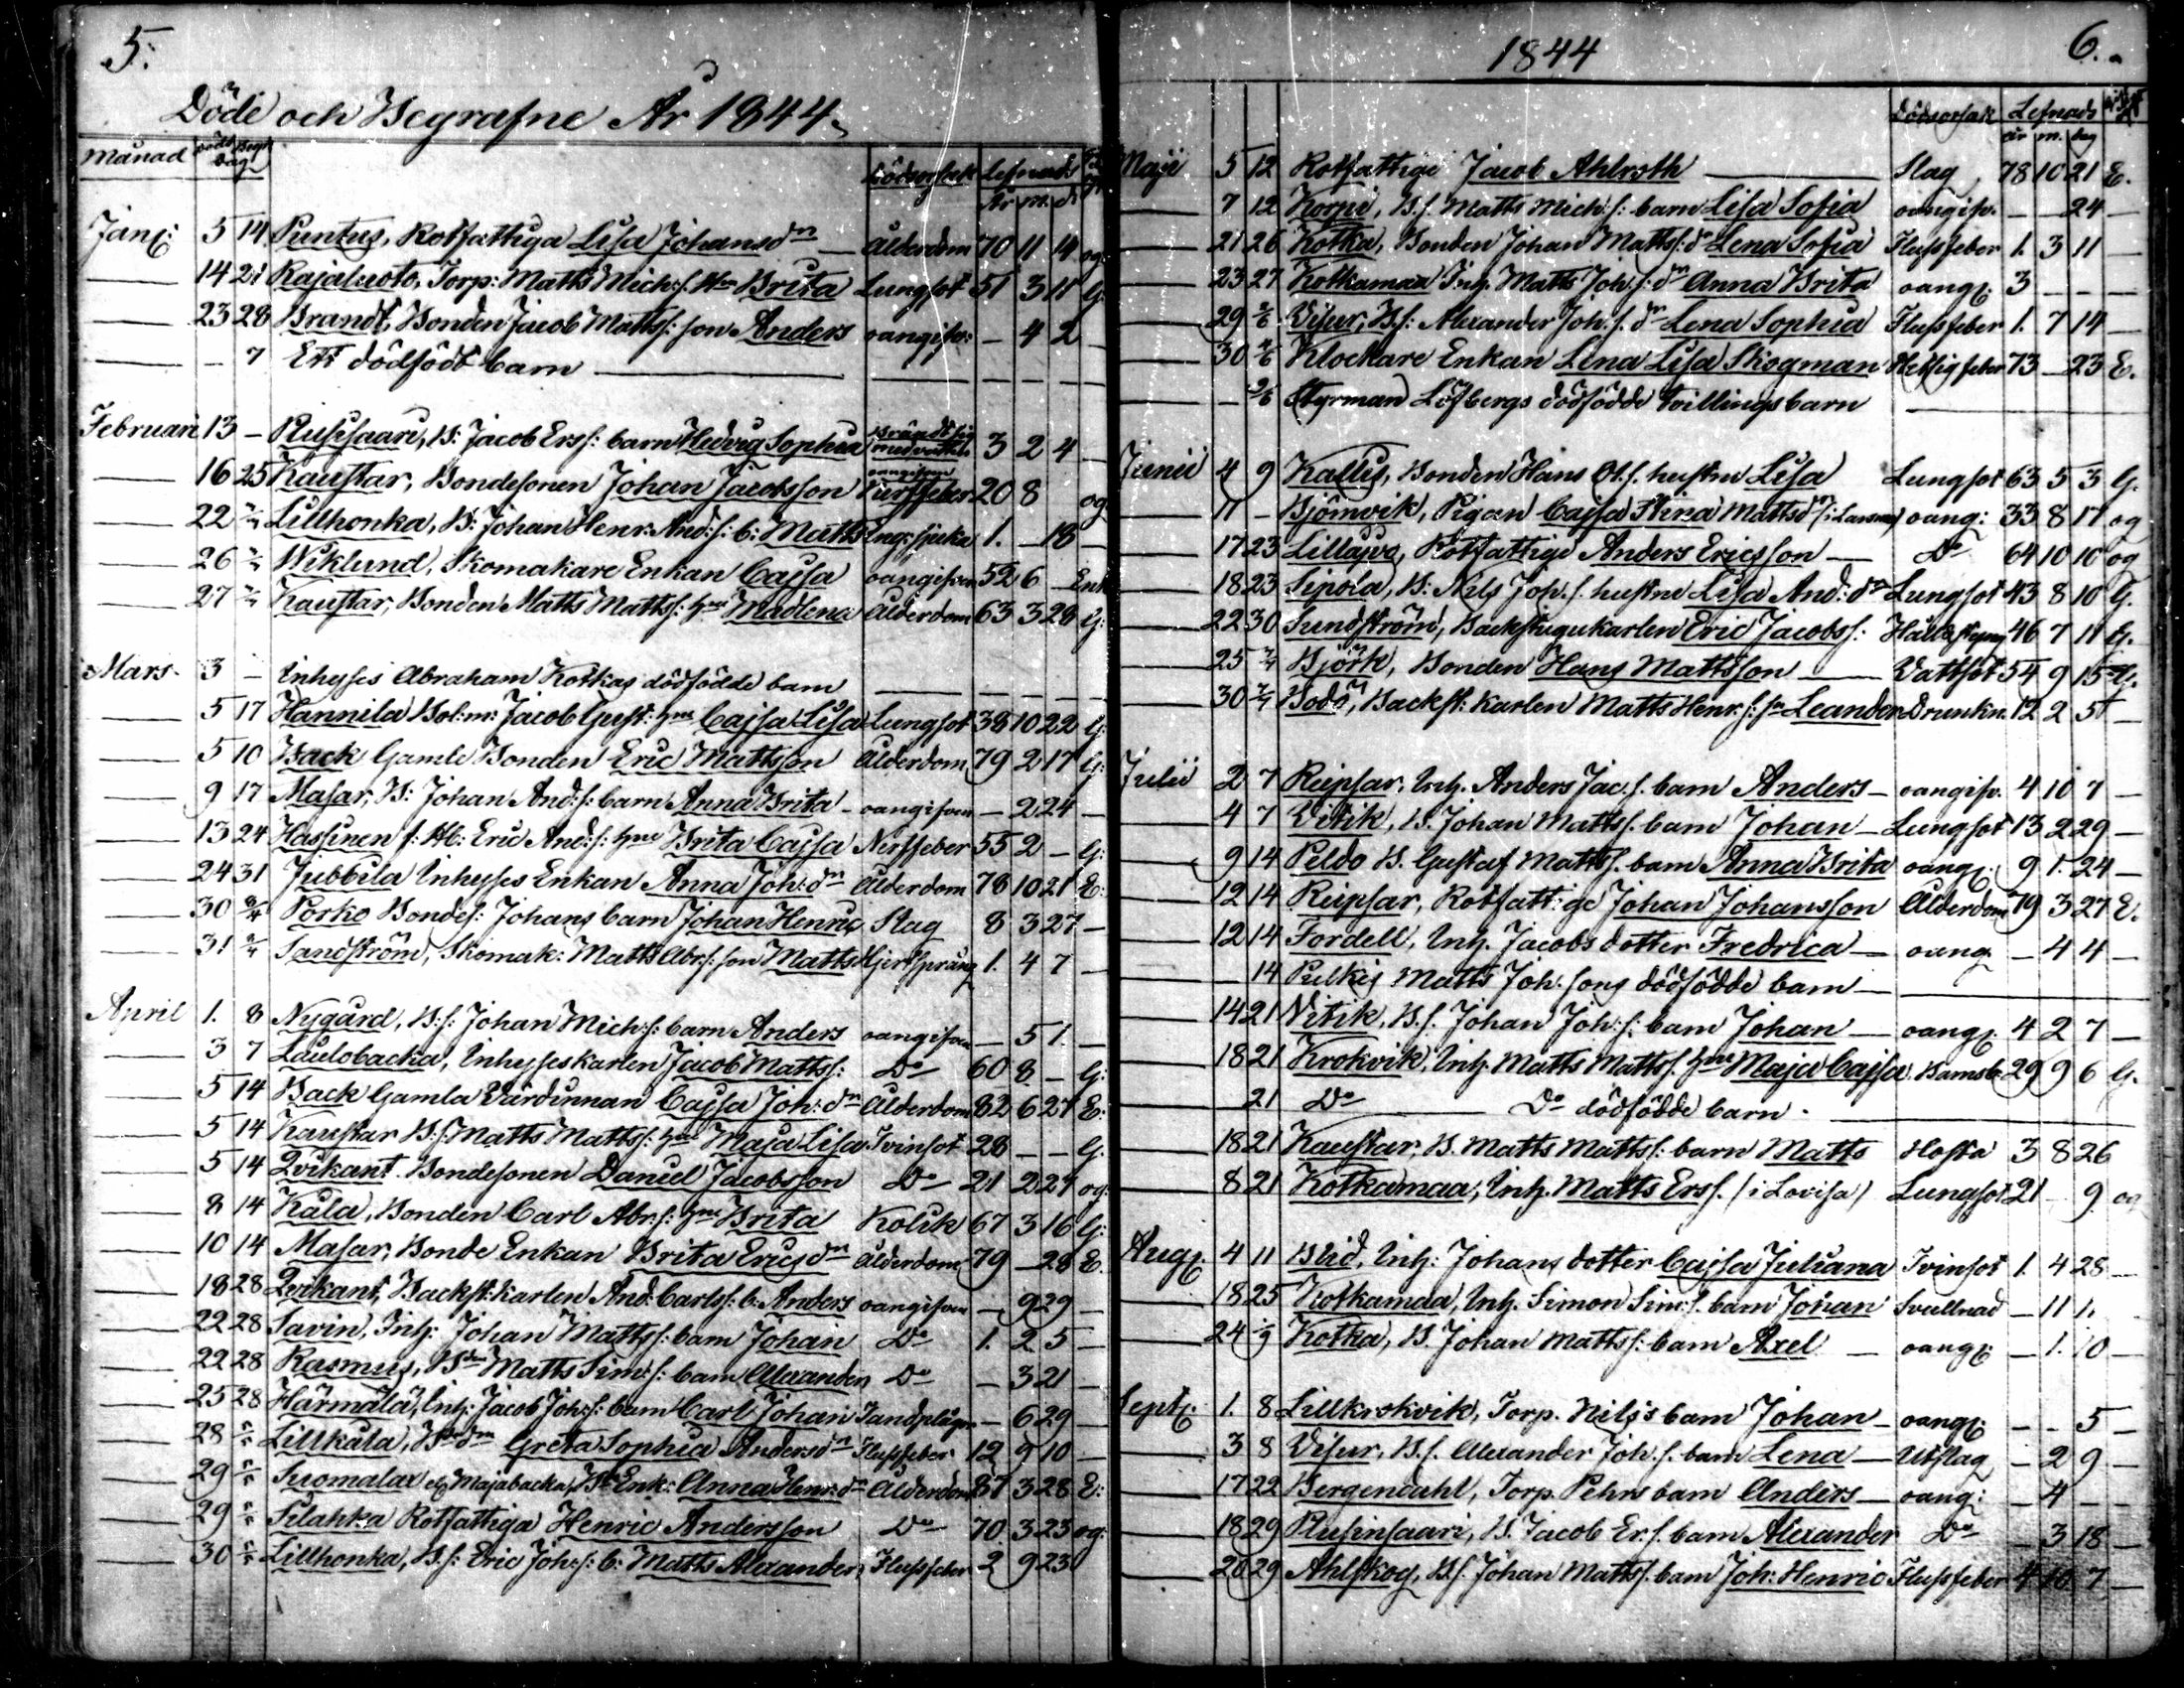 5.
Döde och Begrafne År 1844.
Månad Döds Begr dag Dödsorsak Lefnads
År m. d.
Janr: 5 14 Puntus, Rotfattiga Lisa Johansdr Ålderdom 70 11 11 og:
14 21 Rajaluoto, Torp: Matts Mich:s. H:u Brita Lungsot 51 3 11 G:
23 28 Brandt, Bonden Jacob Mattss: son Anders oangifv: – 4 2
– 7 Ett dödfödt barn
Februari 13 – Rusisaari, B: Jacob Erss: barn Hedvig Sophia Bränt sig med vatten 3 2 4
16 25 Kaustar, Bondesonen Johan Jacobsson 20 8 og
22 Lillhonka, B: Johan Henr. And:s: b: Matts Eng: sjuka 1. – 18
26 Wiklund, Skomakare Enkan Cajsa oangifven 52 6 – Enk
27 Kaustar, Bonden Matts Mattss: Hu Madlena Ålderdom 63 3 28 G:
Mars. 3 – Inhyses Abraham Kotkas dödfödde barn
5 17 Hannila Bol:m: Jacob Gust: Hu Cajsa Lisa Lungsot 38 10 22 G:
5 10 Back Gamle Bonden Eric Mattsson Ålderdom 79 2 17 G:
9 17 Masar, B: Johan And:s: barn Anna Brita – oangifven – 2 24 –
13 24 Hassinen f: Eric And:s: Hu Brita Cajsa Nerffeber 55 2 – G:
24 31 Jubbila Inhyses Enkan Anna Joh:dr Ålderdom 78 10 21 E:
30 Porko Bondes: Johans barn Johan Henric Slag 8 3 27 –
31 Sandström, Skomak: Matts Abr:s: son Matts Hjertsprång 1. 4 7 –
April 1. 8 Nygård, B:s: Johan Mich:s: barn Anders oangifven – 5 1. –
3 7 Laulobacka, Inhyseskarlen Jacob Mattss: Do 60 8 – G:
5 14 Back Gamla Värdinnan Cajsa Joh:dr Ålderdom 82 6 27 E:
5 14 Kaustar B:s: Matts Mattss: Hu Maja Lisa Tvinsot 28 – – G.
5 14 Qvikant Bondesonen Daniel Jacobsson Do 21 2 27 og:
8 14 Kåla, Bonden Carl Abr:s: Hu Brita Kolik 67 3 16 G:
10 14 Masar, Bonde Enkan Brita Ericsdr Ålderdom 79 – 28 E.
18 28 Qvikant, Backst:karlen And. Carlss: b: Anders oangifven – 9 29 –
22 28 Savin, Inh: Johan Mattss: barn Johan Do 1. 2 5 –
22 28 Rasmus, Bden Matts Sim:s: barn Alexander Do – 3 21 –
25 28 Härmälä, Inh: Jacob Joh:s: barn Carl Johan Tandplågor – 6 29 –
28 Lillkåla, Greta Sophia Andersdr Flussfeber 12 9 10 –
29 Suomalax el Majabacka, Bde Enk: Anna Henr:dr Ålderdom 87 3 28 E:
29 Silahka Rotfattiga Henric Andersson Do 70. 3 23 og:
30 Lillhonka, B.s: Eric Joh:s: b: Matts Alexander Flussfeber 2 9 23
1844 6.
Dödsorsak Lefnads
år m. dag
Maji 5 12 Rotfattige Jacob Ahlroth Slag 78 10 21 E.
7 12 Korpi, B.s. Matts Mich:s: barn Lisa Sofia oangifv. – – 24 –
21 26 Kotka, Bonden Johan Mattss: dr Lena Sofia Flussfeber 1. 3 11 –
23 27 Kotkamaa Inh. Matts Joh:s: dr Anna Brita oang: 3 – – –
29 2/6 Visur, B.s: Alexander Joh.s. dr Lena Sophia Flussfeber 1. 7 14 –
30 2/6 Klockare Enkan Lena Lisa Skogman Hettig feber 73 – 23 E.
– 2/6 Styrman Löfbergs dödfödde tvillingsbarn
Junii 4 9 Kallis, Bonden Hans Ol.s. hustru Lisa Lungsot 63 5 3 G.
11 – Björnvik, Pigan Cajsa Stina Mattsdr (i Larsmo) oang: 33 8 17 og
17 23 Lillasva, Rotfattige Anders Ericsson Do 64 10 10 og
18 23 Sipola, B: Nils Joh.s. hustru Lisa And:dr Lungsot 43 8 10 G.
22 30 Sundström, Backstugukarlen Eric Jacobss: Håll & styng 46 7 11 G.
25 7/7 Björk, Bonden Hans Mattsson Vattsot 54 9 15 G.
30 7/7 Bodö, Backst: karlen Matts Henr.s: sn Leander Drunkn. 12 2 5 –
Julii 2 7 Reipsar, Inh. Anders Jac.s. barn Anders – oangifv. 4 10 7 –
4 7 Vitik, B. Johan Mattss. barn Johan – Lungsot 13 2 29 –
9 14 Peldo B. Gustaf Mattss. barn Anna Brita oang: 9 1. 24 –
12 14 Reipsar, Rotfattige Johan Johansson Ålderdom 79 3 27 E.
12 14 Fordell, Inh. Jacobs dotter Fredrica – oang – 4 4 –
14 Pulkis Matts Joh. sons dödfödde barn –
14 21 Vitik, B.s. Johan Joh:s: barn Johan – oang: 4 2 7 –
18 21 Krokvik, Inh. Matts Mattss. Hu Maja Cajsa Barnsb. 29 9 6 G.
21 Do Do dödfödde barn.
18 21 Kaustar, B. Matts Mattss: barn Matts Hosta 3 8 26
8 21 Kotkamaa, Inh. Matts Erss. (i Lovisa) Lungsot 21 – 9 og
Aug: 4 11 Blid, Inh: Johans dotter Cajsa Juliana Tvinsot 1. 4 28 –
18 25 Kotkamaa, Inh. Simon Sim:s. barn Johan Svullnad – 11 1. –
24 1/9 Kotka, B. Johan Mattss: barn Axel – oang: – 1. 10 –
Sept: 1. 8 Lillkrokvik, Torp. Nils's barn Johan – oang: – – 5 –
3 8 Visur, B.s. Alexander Joh.s. barn Lena – Utslag – 2 9 –
17 22 Bergendahl, Torp. Pehrs barn Anders – oang: – 4 – –
18 29 Rusinsaari, B. Jacob Er.s. barn Alexander Do – 3 18 –
20 29 Ahlskog, B.s. Johan Mattss. barn Joh: Henric Flussfeber 4 10 7 –